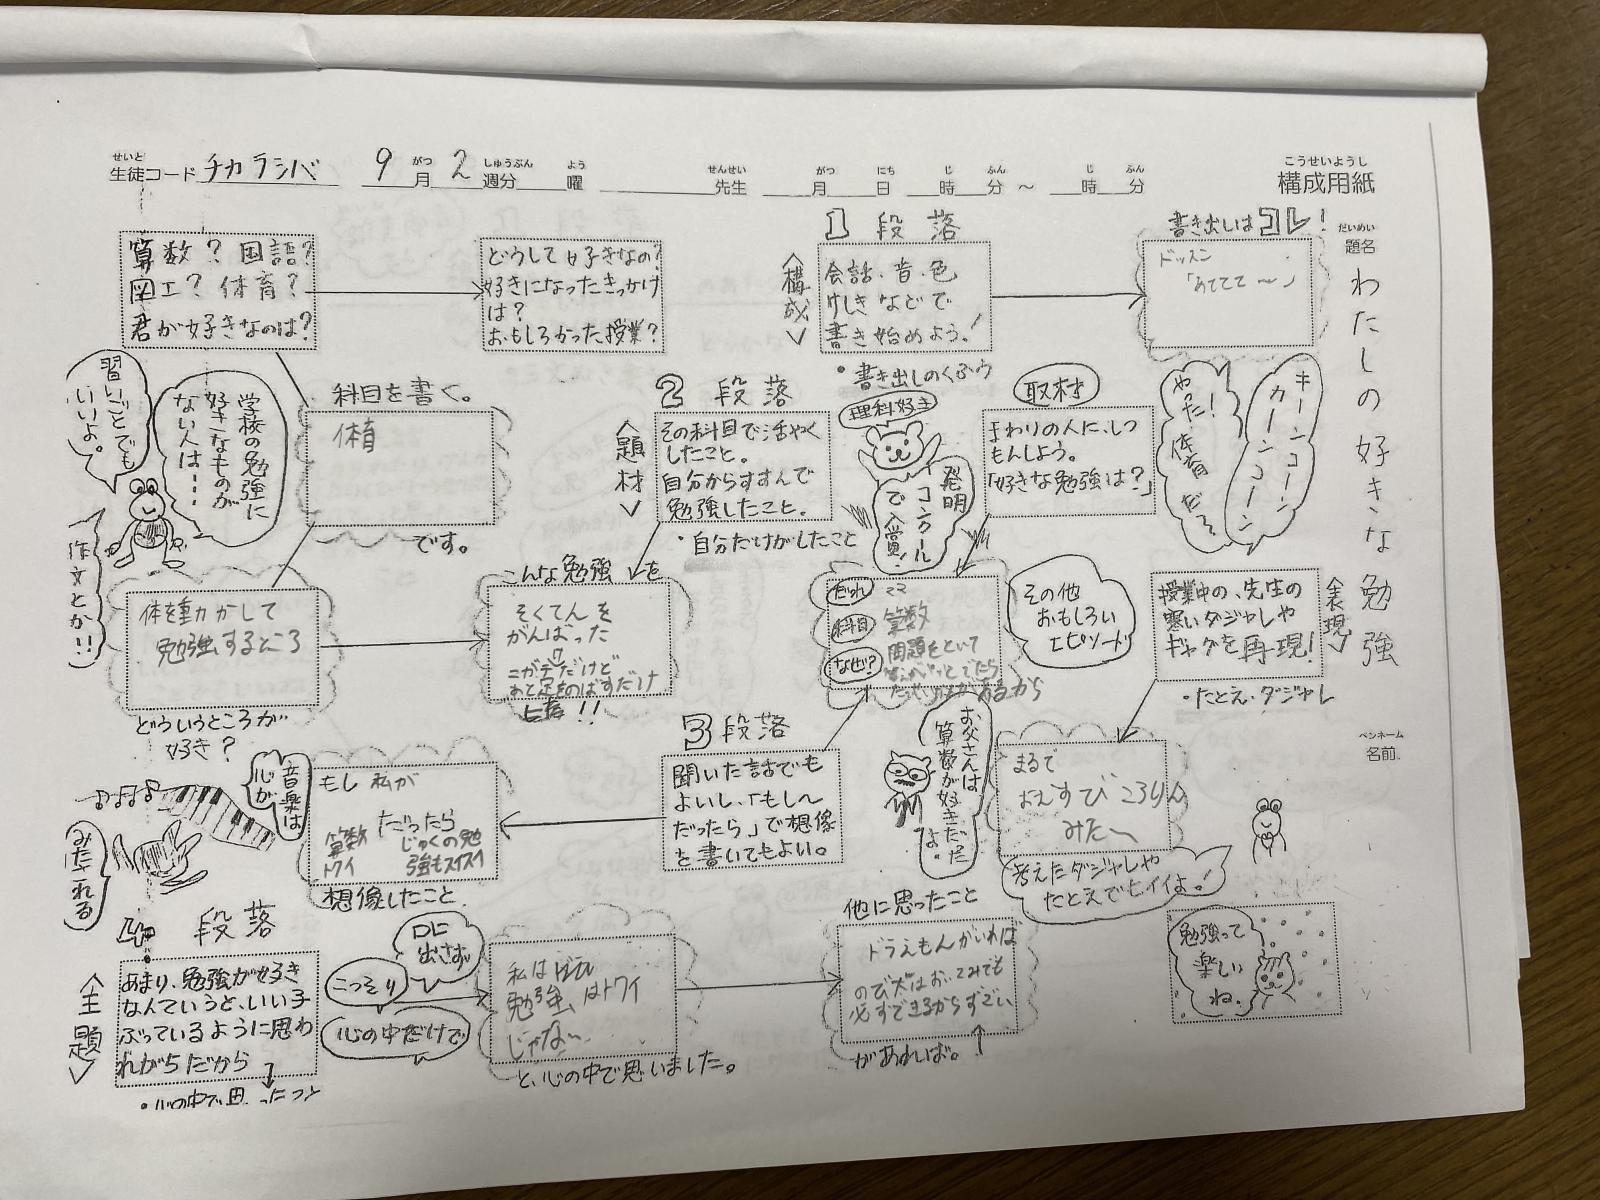 こうせいようし
構成用紙
せいと
生徒コード チカラシバ 9 がつ 月 2 しゅうぶん 週分 よう 曜 せんせい 先生 がつ 月 にち 日 じ 時 ふん 分 ~ じ 時 ふん 分
だいめい
題名
わたしの好きな勉強
ペンネーム
名前
1段落
書き出しはコレ!
<構成>
会話、音、色
けしきなどで
書き始めよう!
・書き出しのくふう
ドッスン
「あててて〜」
キーンコーン
カーンコーン
やった!
体育だぞ
算数?国語?
図工?体育?
君が好きなのは?
どうして好きなの?
好きになったきっかけ
は?
おもしろかった授業?
習いごとでも
いいよ。
学校の勉強に
好きなものが
ない人は……
作文とか!!
科目を書く。
体育
です。
体を動かして
勉強するところ
どういうところが
好き?
2段落
<題材>
その科目で活やく
したこと。
自分からすすんで
勉強したこと。
・自分だけがしたこと
理科好き
発明
コンクール
で入賞!
取材
まわりの人に、しつ
もんしよう。
「好きな勉強は?」
こんな勉強を
そくてんを
がんばった
あと足をのばすだけ
!!
だれ ママ
科目 算数
なぜ? 問題をといて
あるから
その他
おもしろい
エピソード
<表現>
授業中の、先生の
寒いダジャレや
ギャグを再現!
・たとえ・ダジャレ
まるで
みた〜
考えたダジャレや
たとえでもイイよ!
お父さんは
算数が好きだ
よ。
3段落
聞いた話でも
よいし、「もし〜
だったら」で想像
を書いてもよい。
もし 私が
算数 だったら
じゅくの勉
強もスイスイ
想像したこと
音楽は
心が
みたされる
4段落
<主題>
あまり、勉強が好き
なんていうと、いい子
ぶっているように思わ
れがちだから
・心の中で思ったこと
口に
出さず
こっそり
心の中だけで
私は
勉強は
じゃな〜
と、心の中で思いました。
他に思ったこと
ドラえもんがいれば
必ずできるからすごい
があれば。
勉強って
楽しい
ね。